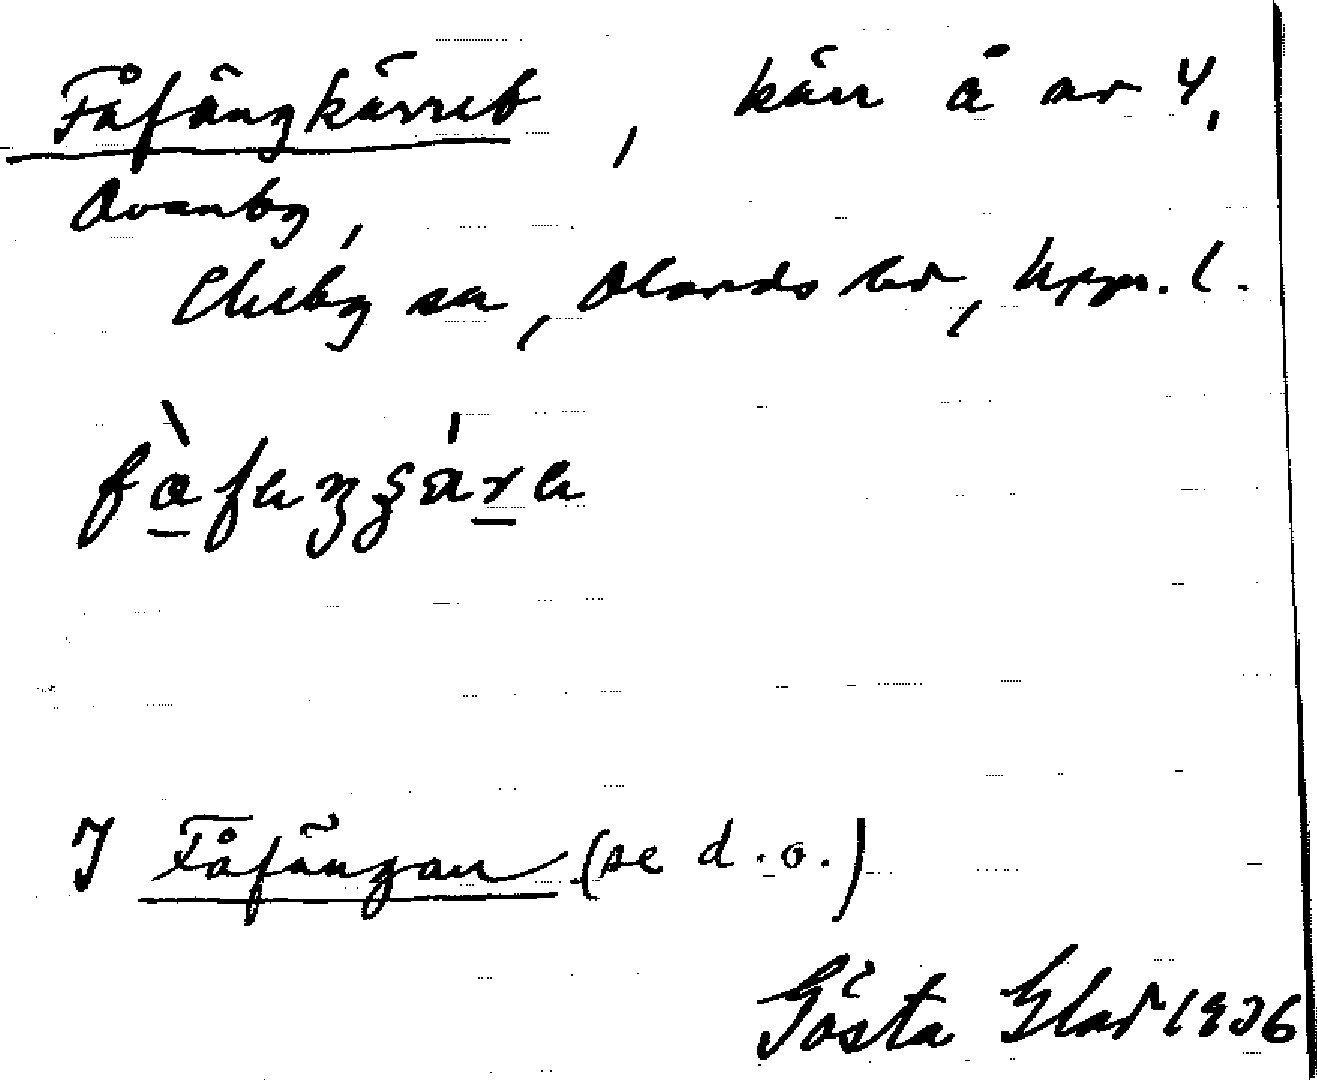 Fåfängkärret, kärr å ar 4,
Ovanby,
Ekeby sn, Olands hd, Uppl.
fàfaŋgära
I Fåfängan (se d.o.)
Gösta 1936